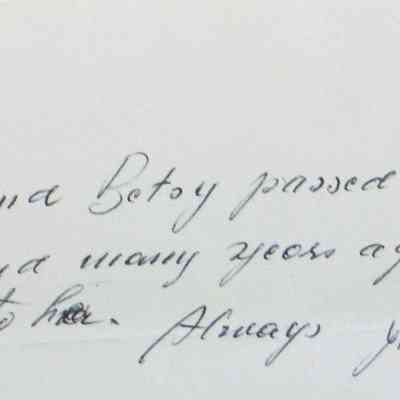 nd Betsy passed
nd many years ag
to her. Always